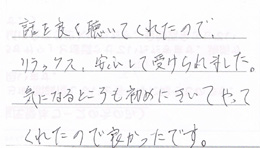 話を良く聴いてくれたので、
リラックス、安心して受けられました。
気になるところも初めにきいてやって
くれたので良かったです。